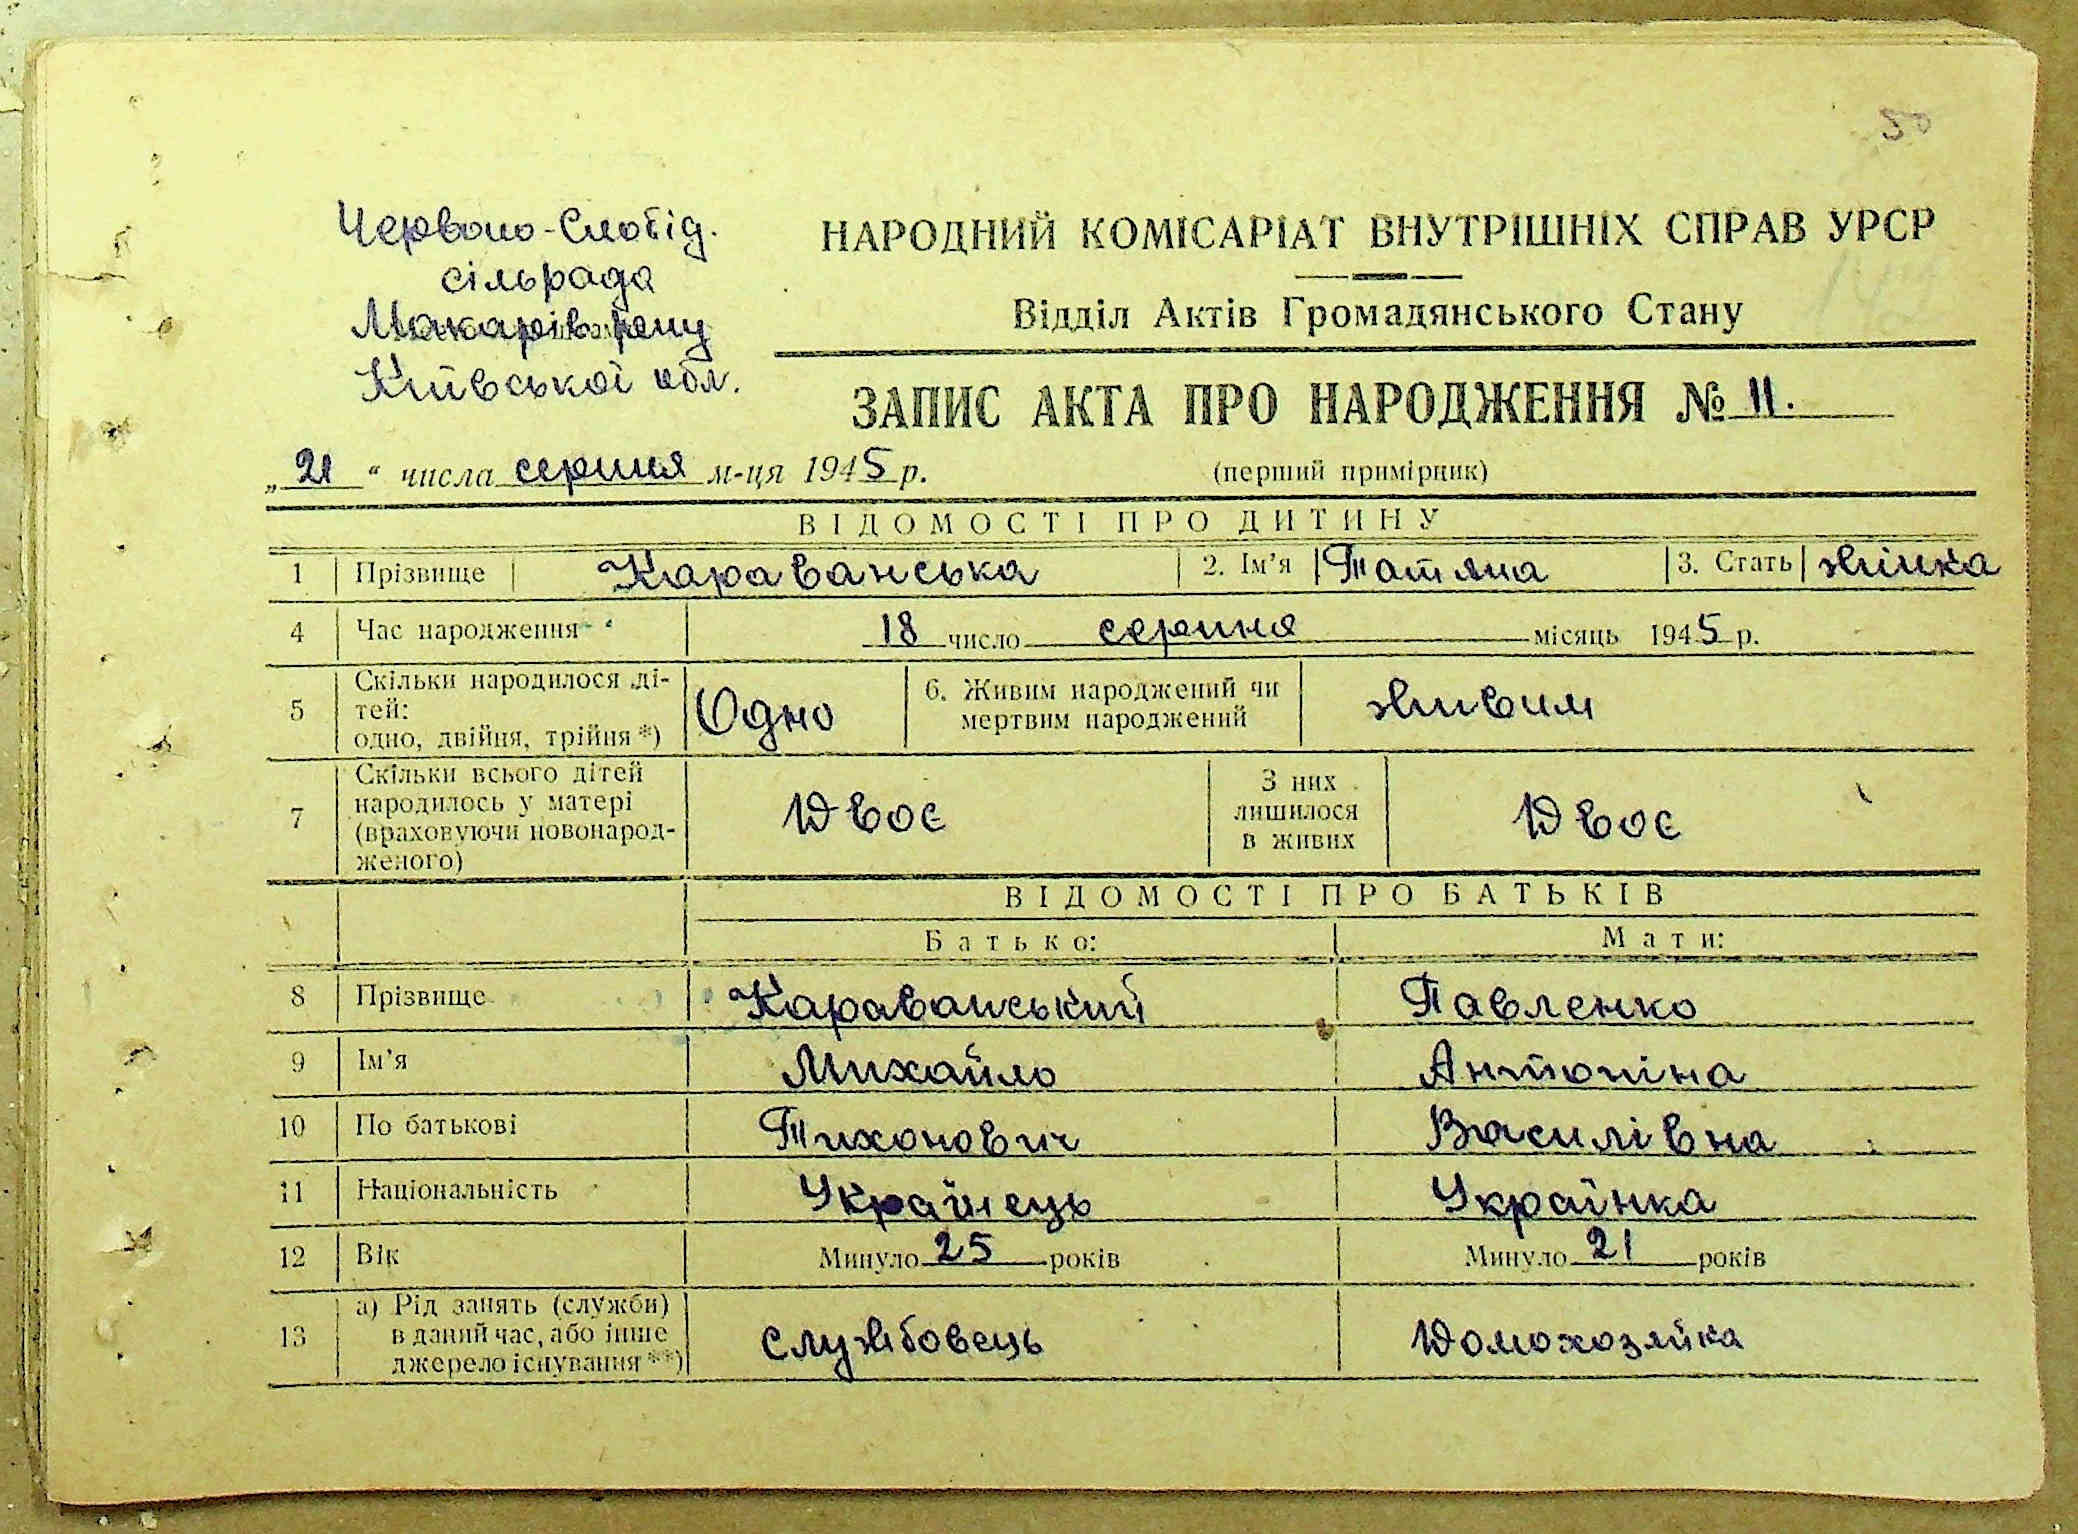 50
Червоно-Слобід.
сільрада
Макарів. р-ну
Київської обл.
НАРОДНИЙ КОМІСАРІАТ ВНУТРІШНІХ СПРАВ УРСР
Відділ Актів Громадянського Стану
ЗАПИС АКТА ПРО НАРОДЖЕННЯ № 11.
„21“ числа серпня м-ця 1945 р.
(перший примірник)
ВІДОМОСТІ ПРО ДИТИНУ
1 Прізвище Караванська 2. Ім'я Татяна 3. Стать жінка
4 Час народження 18 число серпня місяць 1945 р.
5 Скільки народилося ді-
тей:
одно, двійня, трійня *) Одно 6. Живим народжений чи
мертвим народжений живим
7 Скільки всього дітей
народилось у матері
(враховуючи новонарод-
женого) Двоє З них
лишилося
в живих Двоє
ВІДОМОСТІ ПРО БАТЬКІВ
Батько: Мати:
8 Прізвище Караванський Павленко
9 Ім'я Михайло Антоніна
10 По батькові Тихонович Василівна
11 Національність Українець Українка
12 Вік Минуло 25 років Минуло 21 років
13 а) Рід занять (служби)
в даний час, або інше
джерело існування **) службовець Домохозяйка